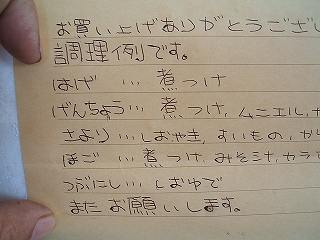 お買い上げありがとうござい
調理例です。
はげ … 煮つけ
げんちょう… 煮つけ, ムニエル,
さより … しおやき, すいもの, から
ほご … 煮つけ, みそ汁, カラ
つぶにし… しおゆで
またお願いします。